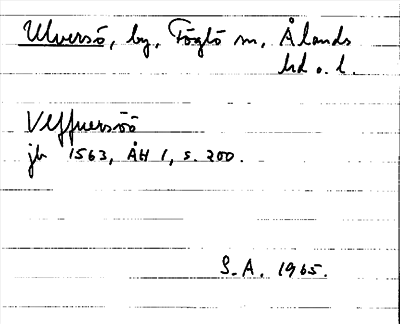 Ulversö, by, Föglö sn, Ålands
hd o. l.
Vlffuersöö
jb 1563, ÅH 1, s. 200.
S.A. 1965.